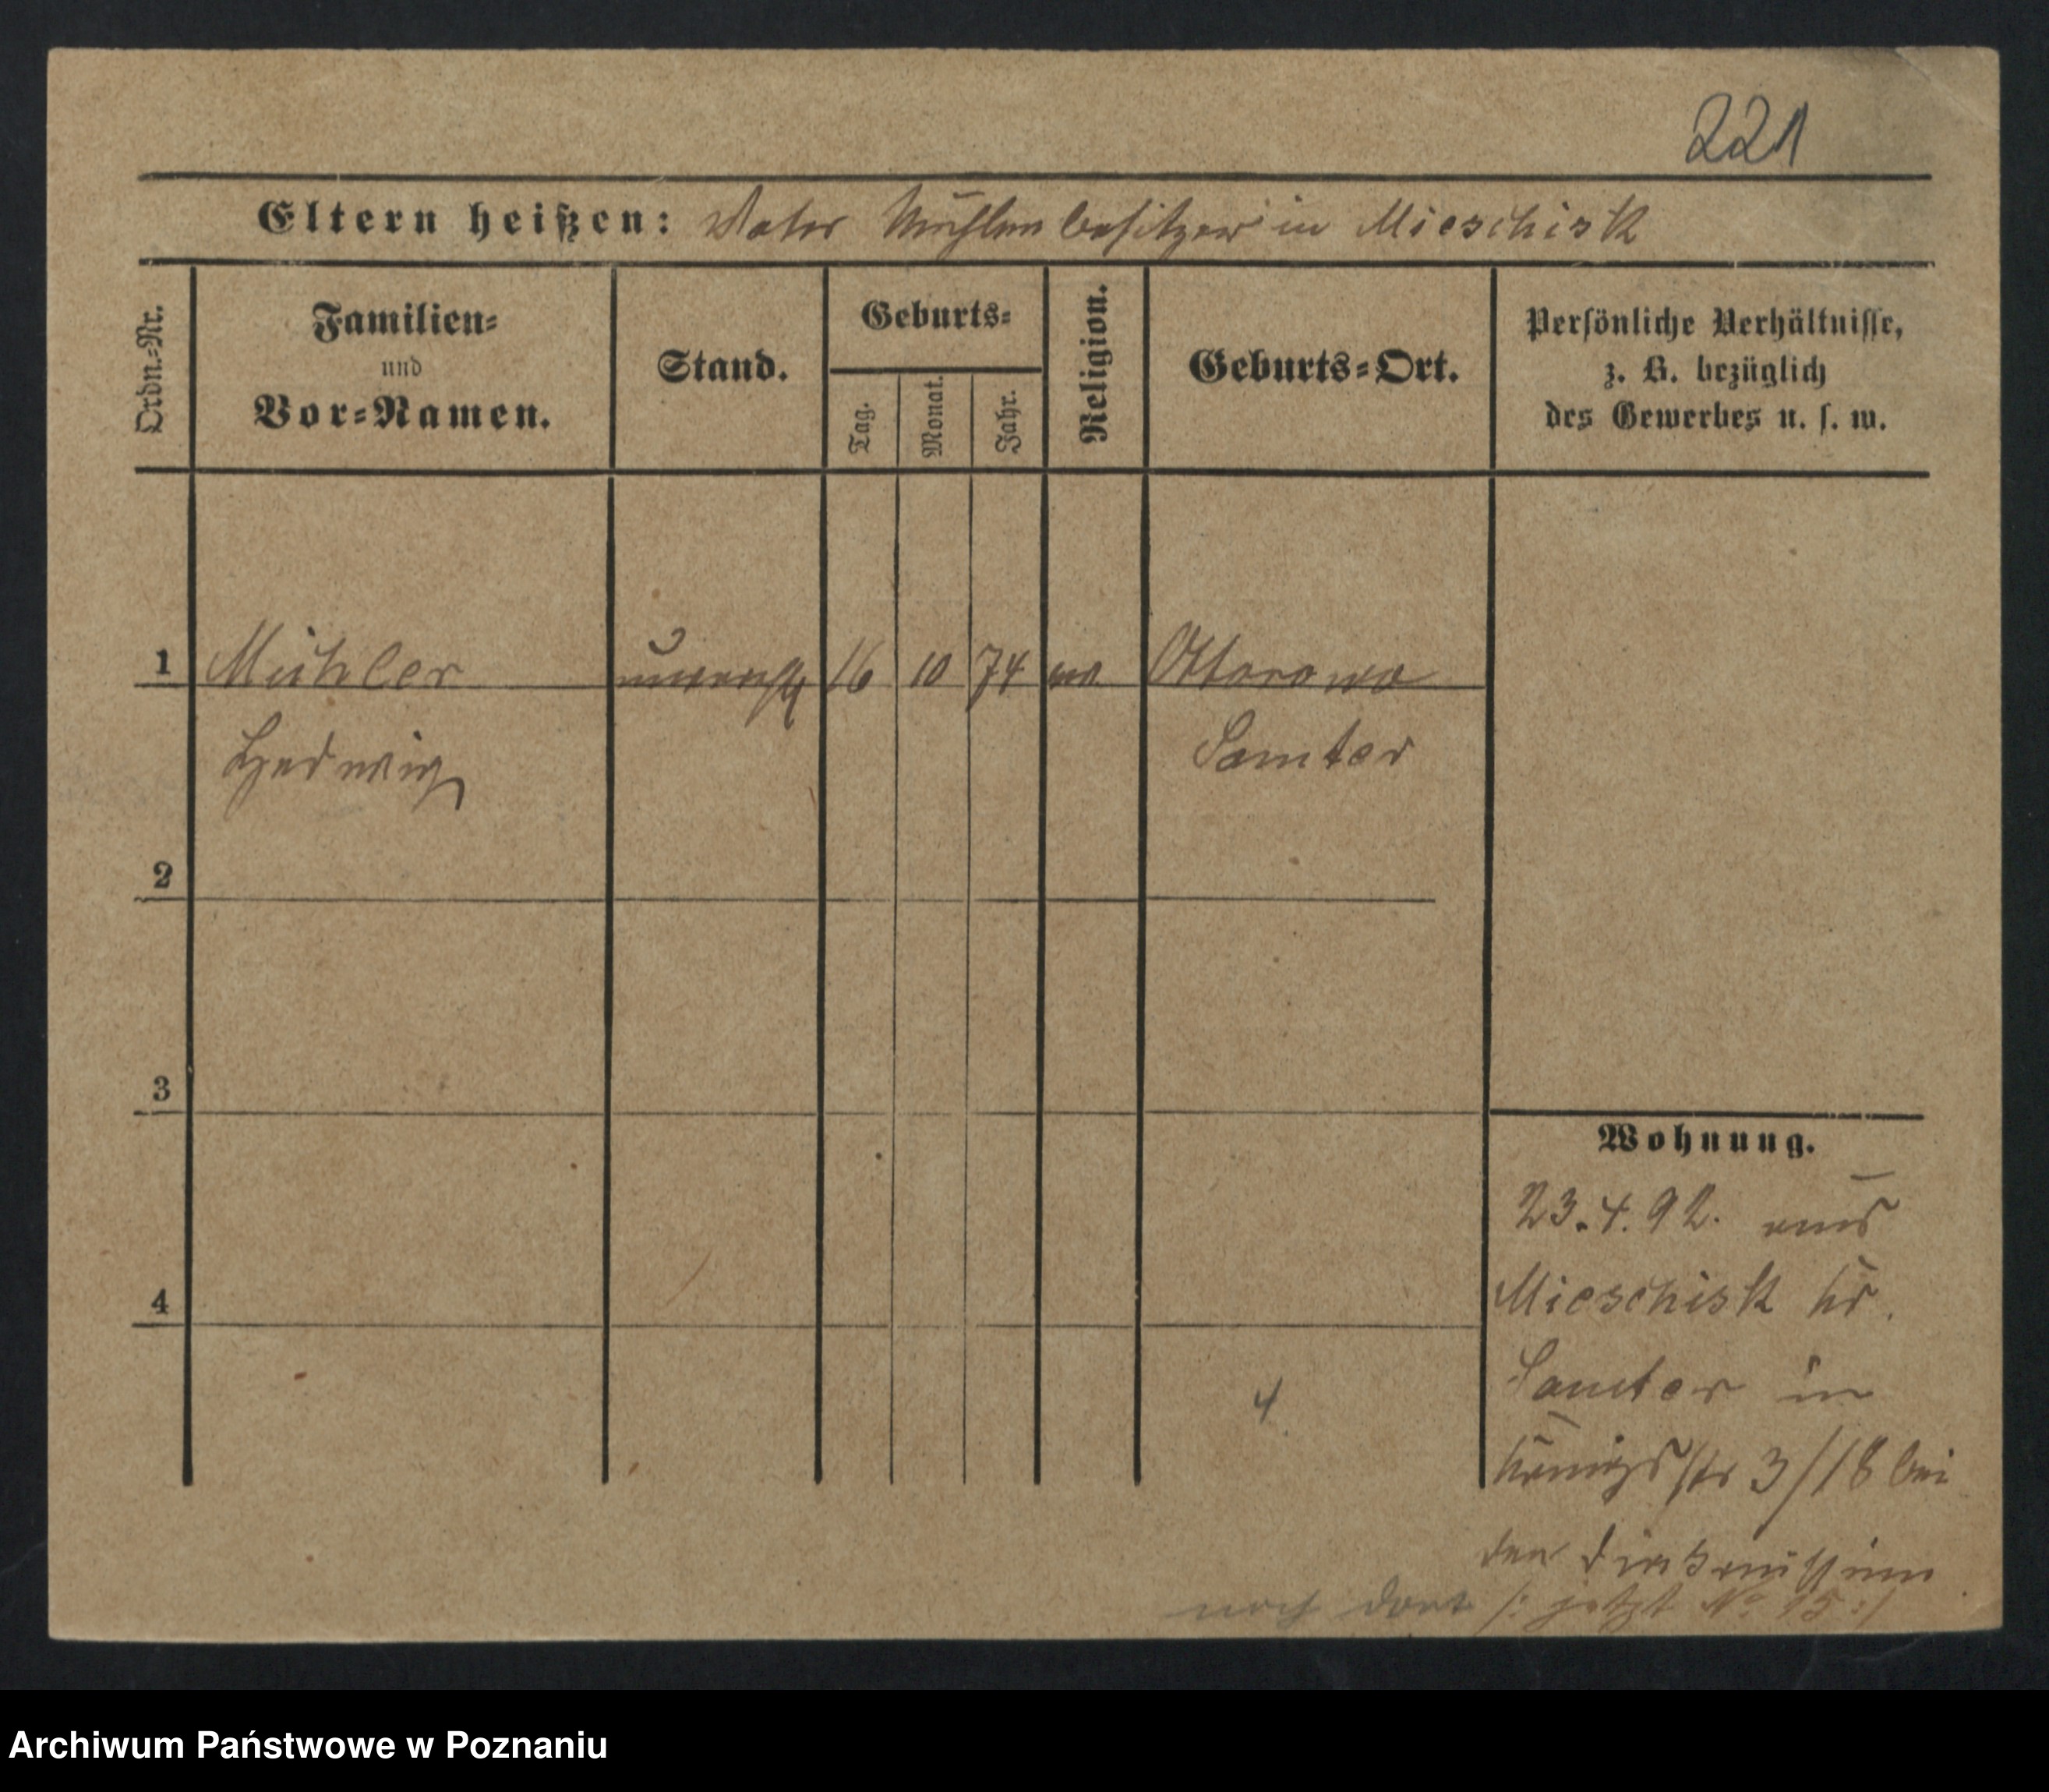 221
Eltern heißen: Vater Mühlenbesitzer in Mieschisk
Ordn.-Nr.
Familien-
und
Vor-Namen.
Stand.
Geburts-
Tag.
Monat.
Jahr.
Religion.
Geburts-Ort.
Persönliche Verhältnisse,
z. B. bezüglich
des Gewerbes u. s. w.
1 Mühler unverh 16 10 74 ev Ottorowo
Hedwig Samter
2
3
4
Wohnung.
23.4.92. aus
Mieschisk Kr.
Samter in
Königsstr 3/18 bei
den Diakonissinnen
noch dort /: jetzt No 15 :/
4
Archiwum Państwowe w Poznaniu